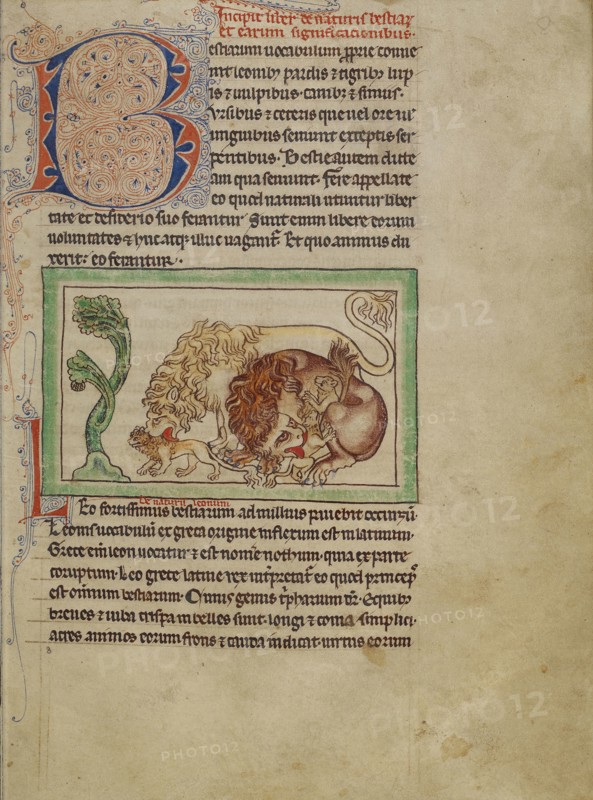 Incipit liber de naturis bestiaꝝ
et earum significacionibus.
Bestiarum uocabulum ꝓprie conue
nit leonibꝫ pardis ⁊ tigribꝫ lup
is ⁊ uulpibus. canibꝫ ⁊ simiis.
Vrsibus ⁊ ceteris que uel ore ul̛
unguibus seuiunt exceptis ser
pentibus. Bestie autem dicte
am qua seuiunt. Fere appellate
eo quod naturali utuntur liber
tate et desiderio suo ferantur Sunt enim libere eorum
uoluntates ⁊ huc atqꝫ illuc uagant̃. Et quo animus du
xerit: eo feruntur.
De naturis leonum
Leo fortissimus bestiarum ad nullius pauebit
Leonis uocabulũ ex greca origine inflexum est in latinum.
Grece eñ leon uocatur ⁊ est nomẽ nothum. quia ex parte
coruptum. Leo grete latine rex int̃pretat̃ eo quod princeps
est omnium bestiarum. Cuius genus t̃pharium dr̃. Equibꝫ
breues ⁊ iuba crispa inbelles sunt. longi ⁊ coma simplici.
acres animos eorum frons ⁊ cauda indicat. uirtus eorum
PHOTO12